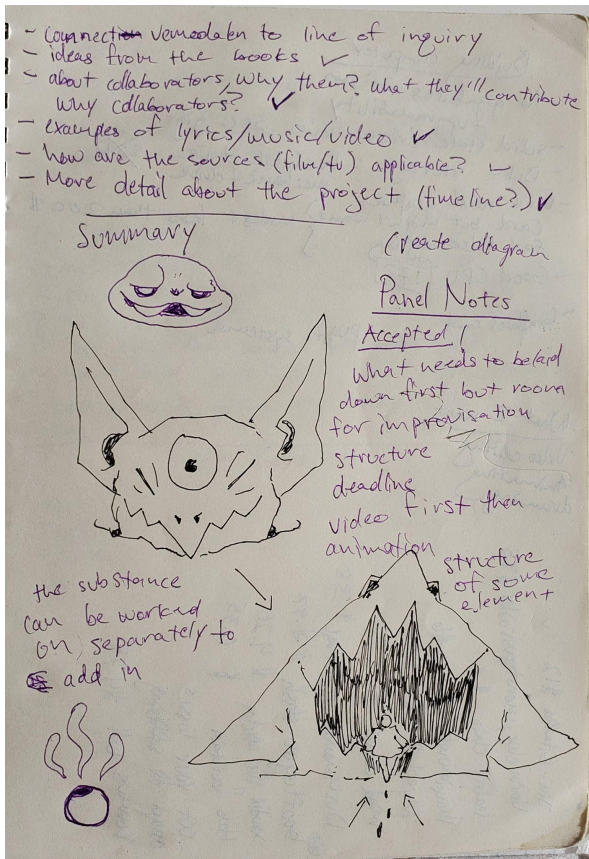 - connection Vemödalen to line of inquiry
- ideas from the books ✓
- about collaborators, why them? what they'll contribute
why collaborators? ✓
- examples of lyrics/music/video ✓
- how are the sources (film/tv) applicable? ✓
- More detail about the project (timeline?) ✓
Summary
Create diagram
Panel Notes
Accepted!
What needs to be laid
down first but room
for improvisation
structure
deadline
video first then
animation
structure
of some
element
the substance
can be worked
on separately to
add in